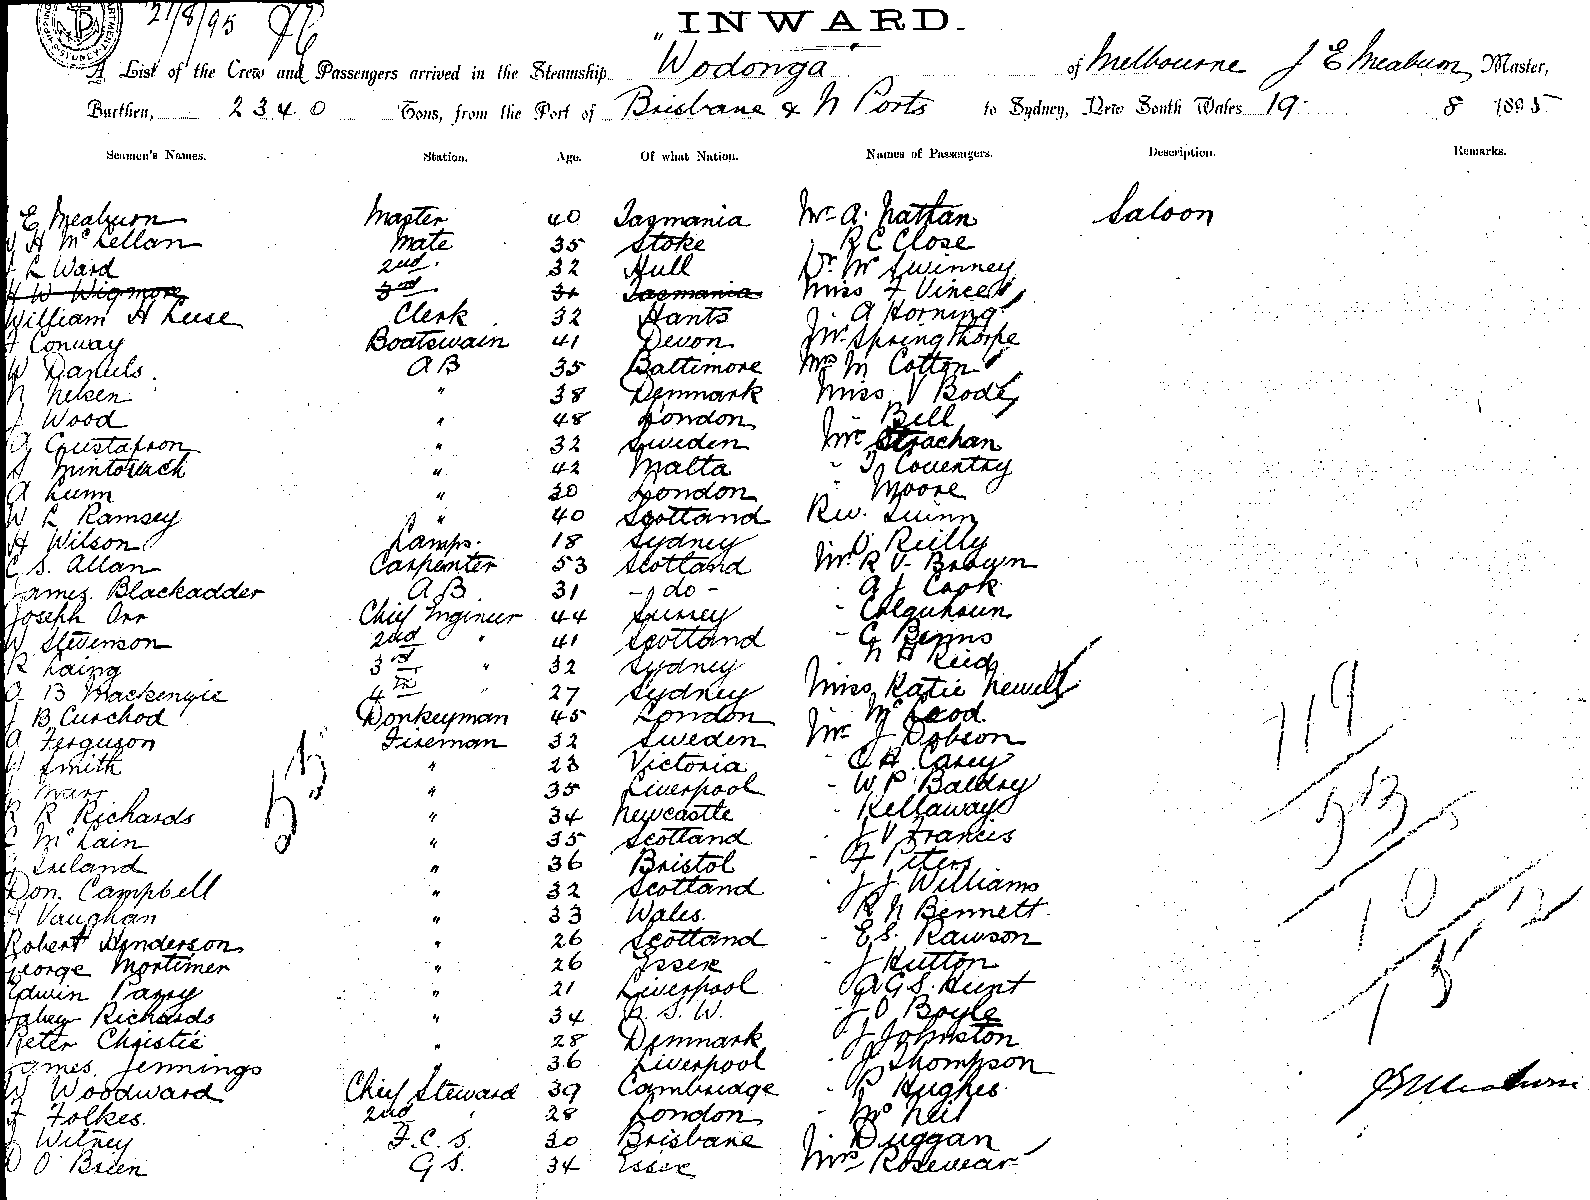 21/8/95
INWARD.
A List of the Crew and Passengers arrived in the Steamship Wodonga of Melbourne J E Meaburn Master,
Burthen, 2340 Tons, from the Port of Brisbane & N Ports to Sydney, New South Wales 19 8 1895
Seamen's Names. Station. Age. Of what Nation. Names of Passengers. Description. Remarks.
E Meaburn Master 40 Tasmania Mr A. Nathan Saloon
J H McLellan Mate 35 Stoke R C Close
J L Ward 2nd 32 Hull Dr McSwinney
H W Wigmore 3rd Tasmania Miss F Vincent
William H Luse Clerk 32 Hants A Horning
F Conway Boatswain 41 Devon Mr Springthorpe
W Daniels. A B 35 Baltimore Mr M Cotton
N Nelsen " 38 Denmark Miss V Bode
J Wood " 48 London Bell
A Gustafson " 32 Sweden Mr Strachan
" 42 Malta - T Coventry
A Lunn " 30 London " Moore
W L Ramsey " 40 Scotland Rev. Quinn
H Wilson Lamps. 18 Sydney O'Reilly
C S. Allan Carpenter 53 Scotland Mr R V. Brown
James Blackadder A B 31 - do - - A J Cook
Joseph Orr Chief Engineer 44 Surrey - Colquhoun
W Stevenson 2nd " 41 Scotland - G Binns
R Laing 3rd " 32 Sydney N H Reid
A B Mackenzie 4th " 27 Sydney Miss Katie Newell
J B Curchod Donkeyman 45 London McLeod
A Ferguson Fireman 32 Sweden Mr J Dobson
W Smith " 23 Victoria - C H. Carey
J Marr " 35 Liverpool - W P Baldry
R R Richards " 34 Newcastle - Kellaway
C McLain " 35 Scotland - J V Francis
J Ireland " 36 Bristol - F Peters
Don. Campbell " 32 Scotland - J J Williams
H Vaughan " 33 Wales. - R N Bennett
Robert Henderson " 26 Scotland - E S. Rawson
George Mortimer " 26 Essex - J Hutton
Edwin Parry " 21 Liverpool - A G S. Hunt
Richards " 34 N. S. W. - J O Boyle
Peter Christie " 28 Denmark - J Johnston
James Jennings " 36 Liverpool - J Thompson
W Woodward Chief Steward 39 Cambridge - R Hughes
F Folkes. 2nd " 28 London - McNeil
J Witney F. C. S. 30 Brisbane - Duggan
D O'Brien G S. 34 Essex Mrs Rosewear
55
119
53
10 12
15
J E Meaburn